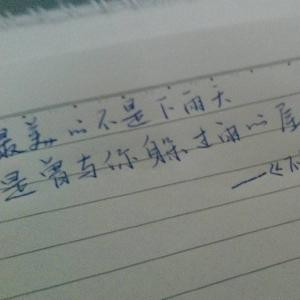 最美的不是下雨天
是曾与你躲过雨的屋
—《不